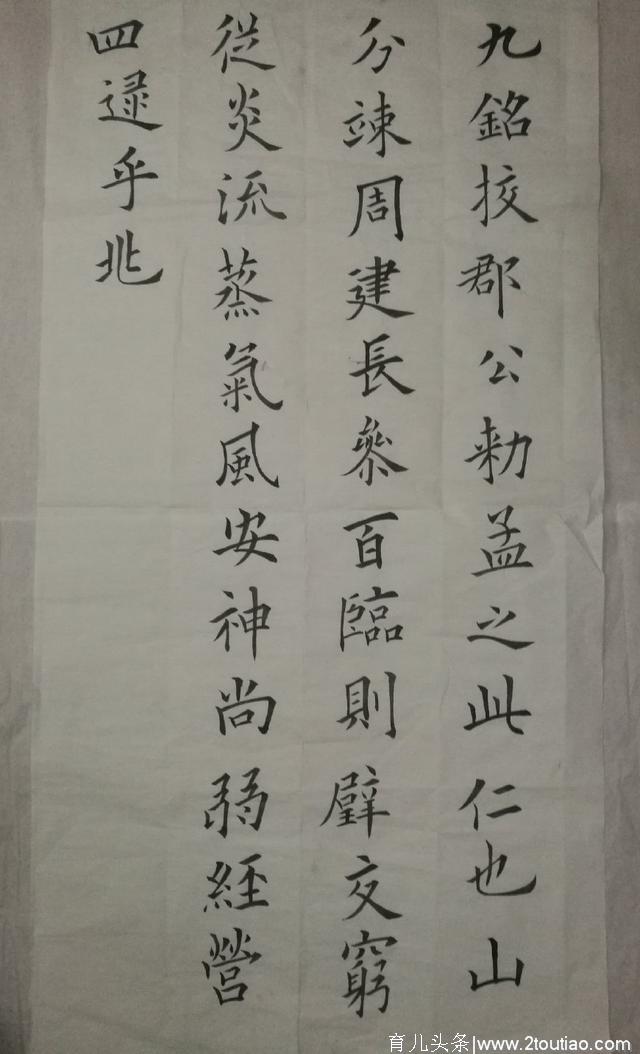 九銘挍郡公勑孟之此仁也山
分竦周建長叅百臨則壁交窮
従炎流蒸氣風安神尚弱經營
四逯乎兆
育儿头条/www.2toutiao.com